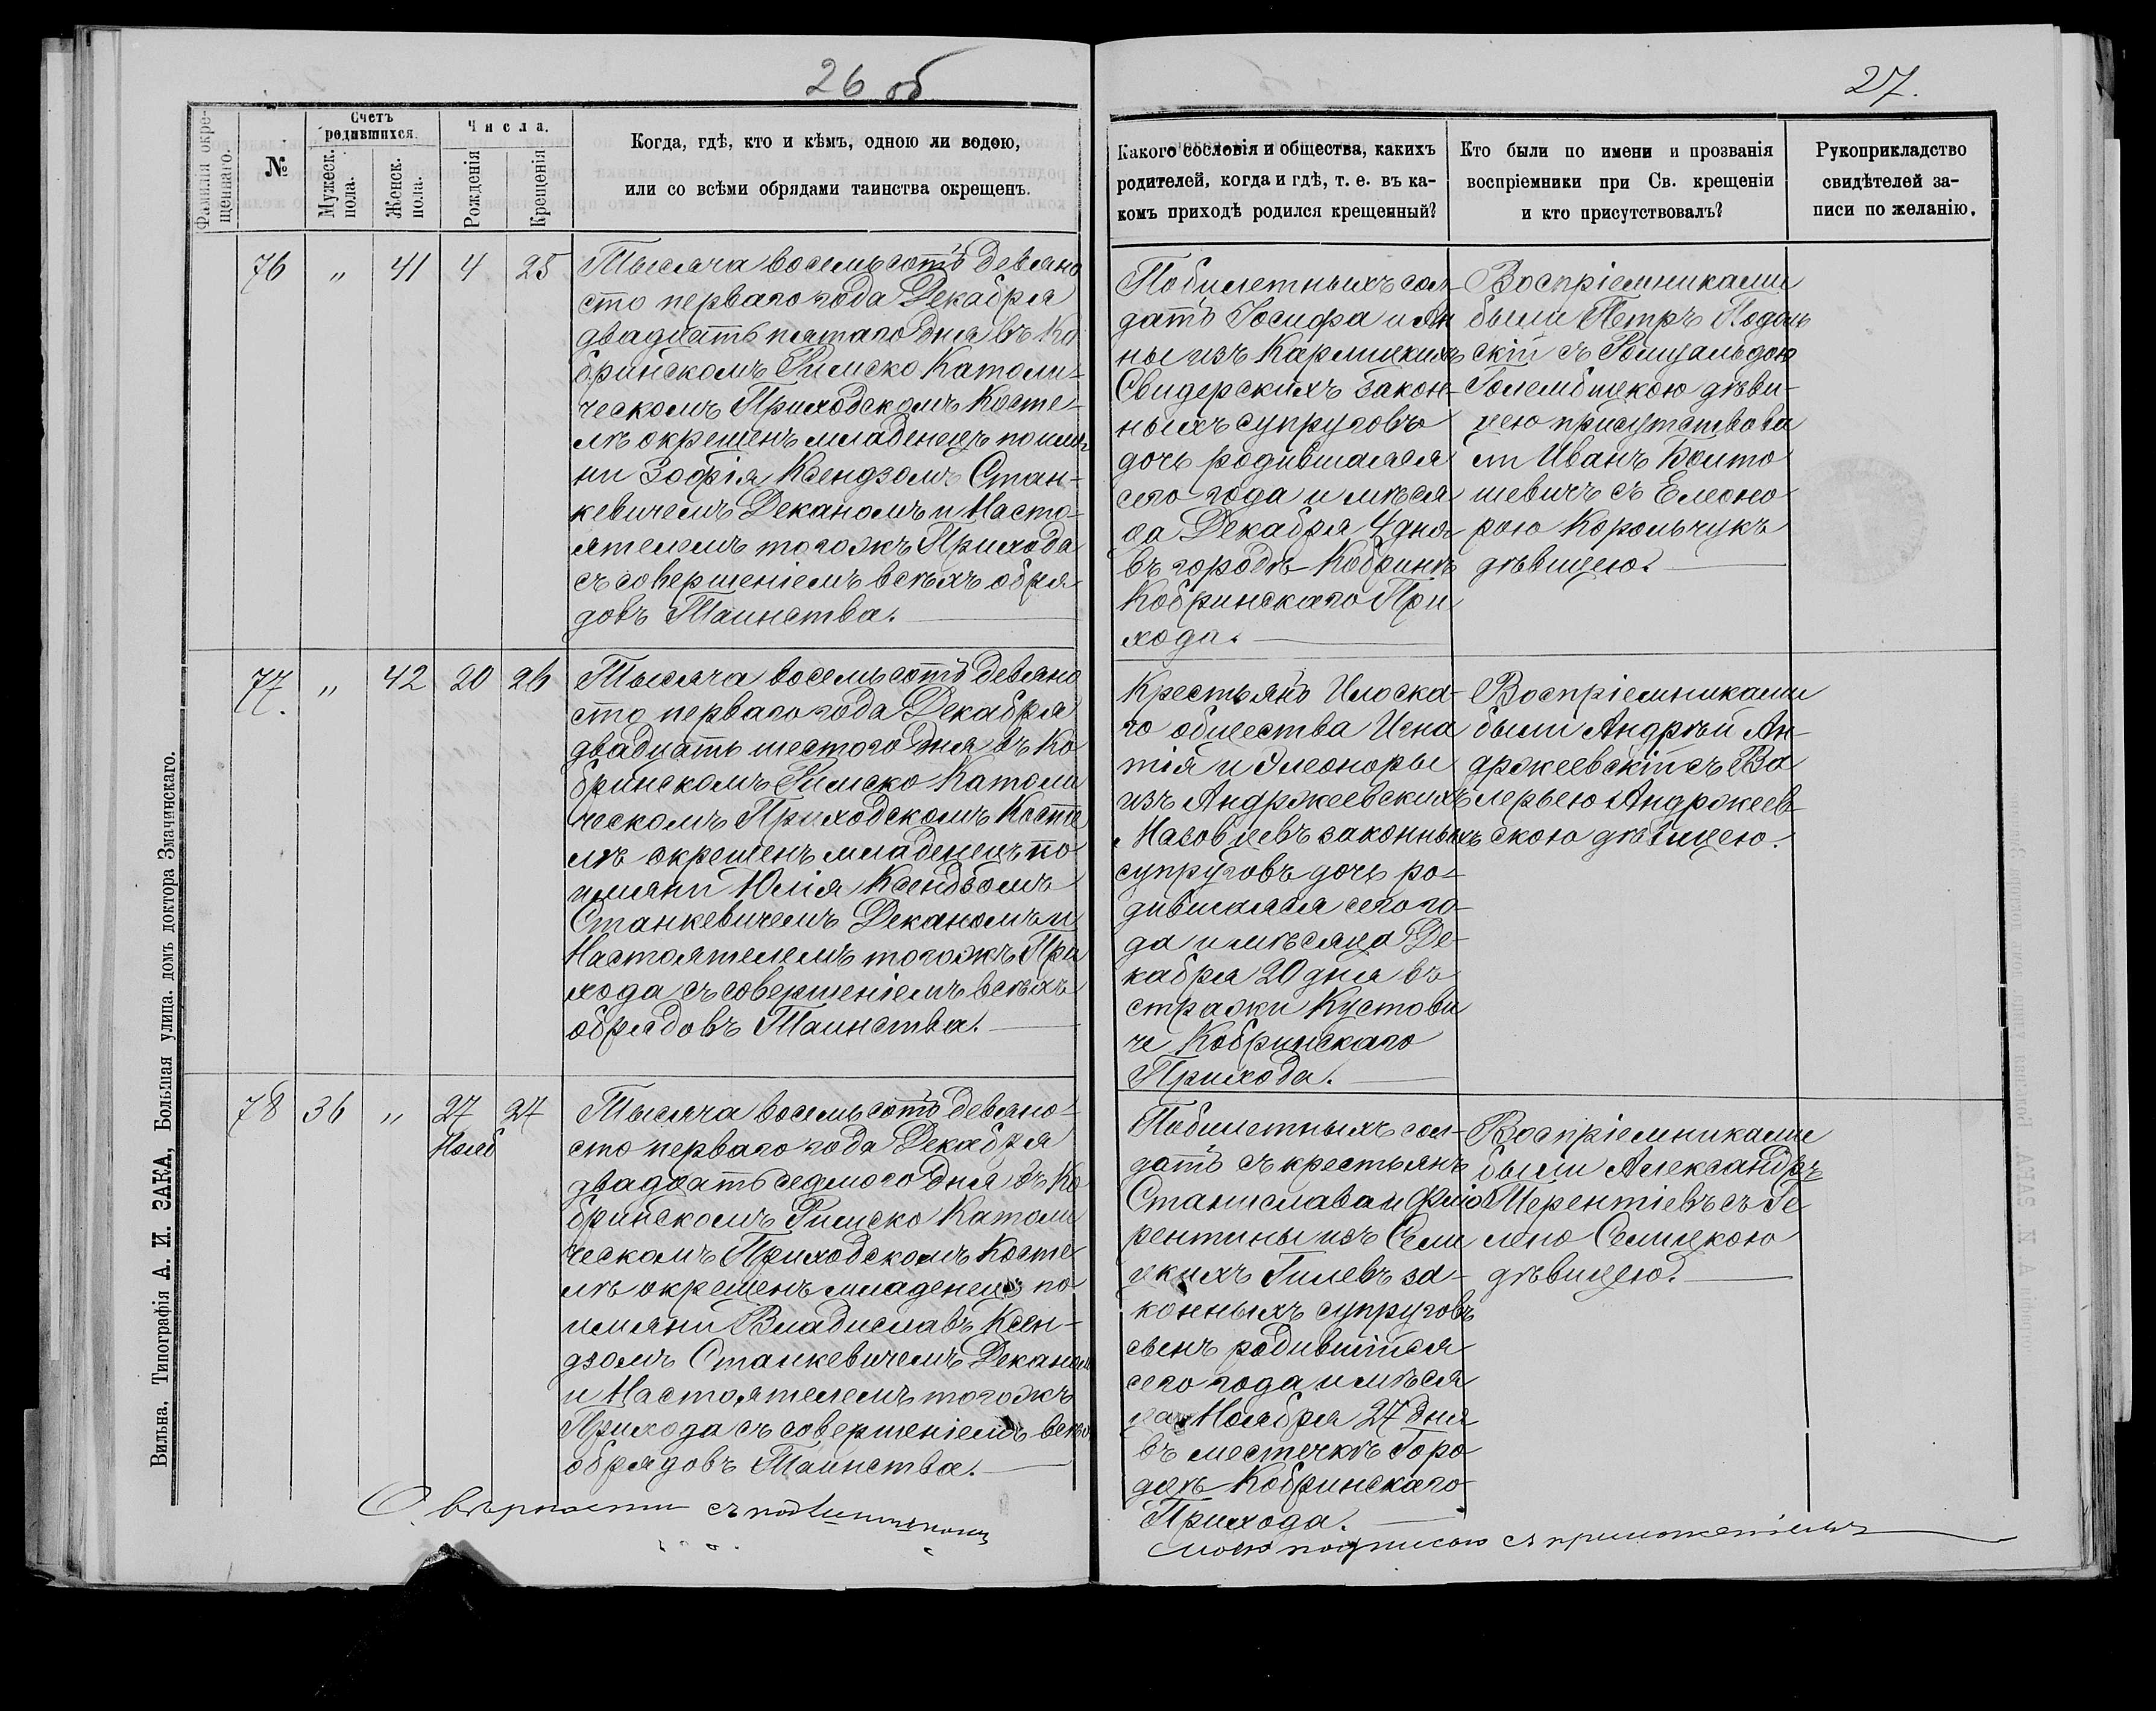 26 об
27.
Фамилія окре-
щеннаго.
№
Счетъ
родившихся.
Мужеск.
пола.
Женск.
пола.
Числа.
Рожденія
Крещенія
Когда, гдѣ, кто и кѣмъ, одною ли водою,
или со всѣми обрядами таинства окрещенъ.
Какого сословія и общества, какихъ
родителей, когда и гдѣ, т. е. въ ка-
комъ приходѣ родился крещенный?
Кто были по имени и прозванія
воспріемники при Св. крещеніи
и кто присутствовалъ?
Рукоприкладство
свидѣтелей за-
писи по желанію.
76 " 41 4 25
Тысяча восемьсотъ девяно
сто перваго года Декабря
двадцать пятаго дня въ Ко
бринскомъ Римско Католи-
ческомъ Приходскомъ Косте-
лѣ окрещенъ младенецъ по имя
ни Зофія Ксендзомъ Стан-
кевичемъ Деканомъ и Насто-
ятелемъ тогожъ Прихода
съ совершеніемъ всѣхъ обря
довъ Таинства.
Побилетныхъ сол-
датъ Іосифа и Ян
ны изъ Кармицкихъ
Свидерскихъ закон-
ныхъ супруговъ
дочь родившаяся
сего года и мѣся
ца Декабря 4 дня
въ городѣ Кобринѣ
Кобринскаго При
хода.
Воспріемниками
были Петръ Подоль
скій съ Ромуальдою
Голембіцкою дѣви-
цею присутствова
ли Иванъ Болто
шевичъ съ Елеоно
рою Корольчукъ
дѣвицею.
77. " 42 20 26
Тысяча восемьсотъ девяно
сто перваго года Декабря
двадцать шестого дня въ Ко
бринскомъ Римско Католи
ческомъ Приходскомъ Косте
лѣ окрещенъ младенецъ по
имяни Юлія Ксендзомъ
Станкевичемъ Деканомъ и
Настоятелемъ тогожъ При
хода съ совершеніемъ всѣхъ
обрядовъ Таинства.
Крестьянъ Илоска-
го общества Игна
тія и Элеоноры
изъ Андржеевскихъ
Мазовцевъ законныхъ
супруговъ дочь ро-
дившаяся сего го-
да и мѣсяца Де-
кабря 20 дня въ
стражи Кустови
че Кобринскаго
Прихода.
Воспріемниками
были Андрѣй Ан-
држеевскій съ Ва
лерьею Андржеев
скою дѣвицею.
78 36 " 27 27
Нояб
Тысяча восемьсотъ девяно-
сто перваго года Декабря
двадцать седмого дня въ Ко
бринскомъ Римско Католи
ческомъ Приходскомъ Косте
лѣ окрещенъ младенецъ по
имяни Владиславъ Ксен-
дзомъ Станкевичемъ Деканом
и Настоятелемъ тогожъ
Прихода съ совершеніемъ всѣхъ
обрядовъ Таинства.
Побилетныхъ сол-
датъ съ крестьянъ
Станислава и Фло
рентины изъ Сели
цкихъ Гилевъ за-
конныхъ супруговъ
сынъ родившійся
сего года и мѣся
ца Ноября 27 дня
въ местечкѣ Горо
децъ Кобринскаго
Прихода.
Воспріемниками
были Александръ
Терентіевъ съ Ге
лено Селицкою
дѣвицею.
О вѣрности съ подлинникомъ
моею подписью съ приложеніемъ
Вильна, Типографія А. И. ЗАКА, Большая улица, домъ доктора Змачинскаго.